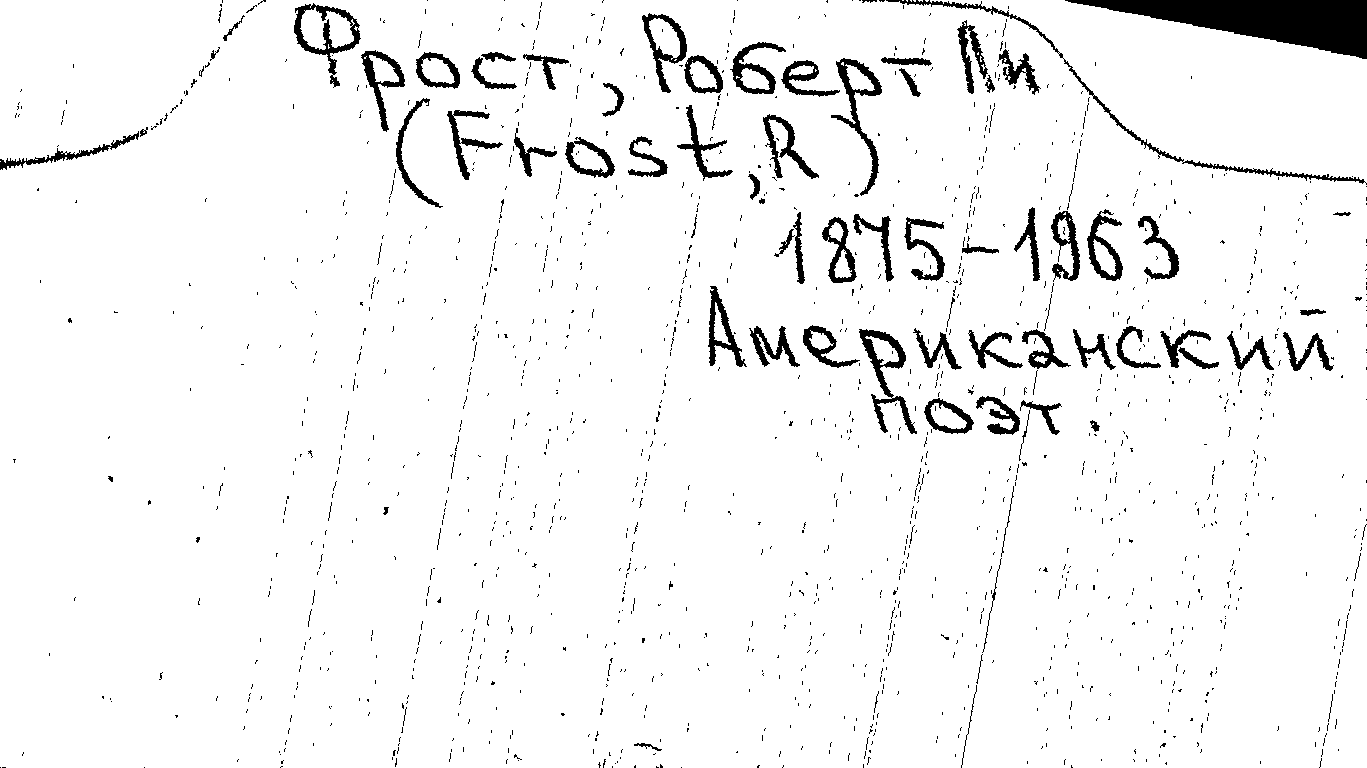 Фрост, Роберт Ли
(Frost, R)
1875-1963
Американский
поэт.